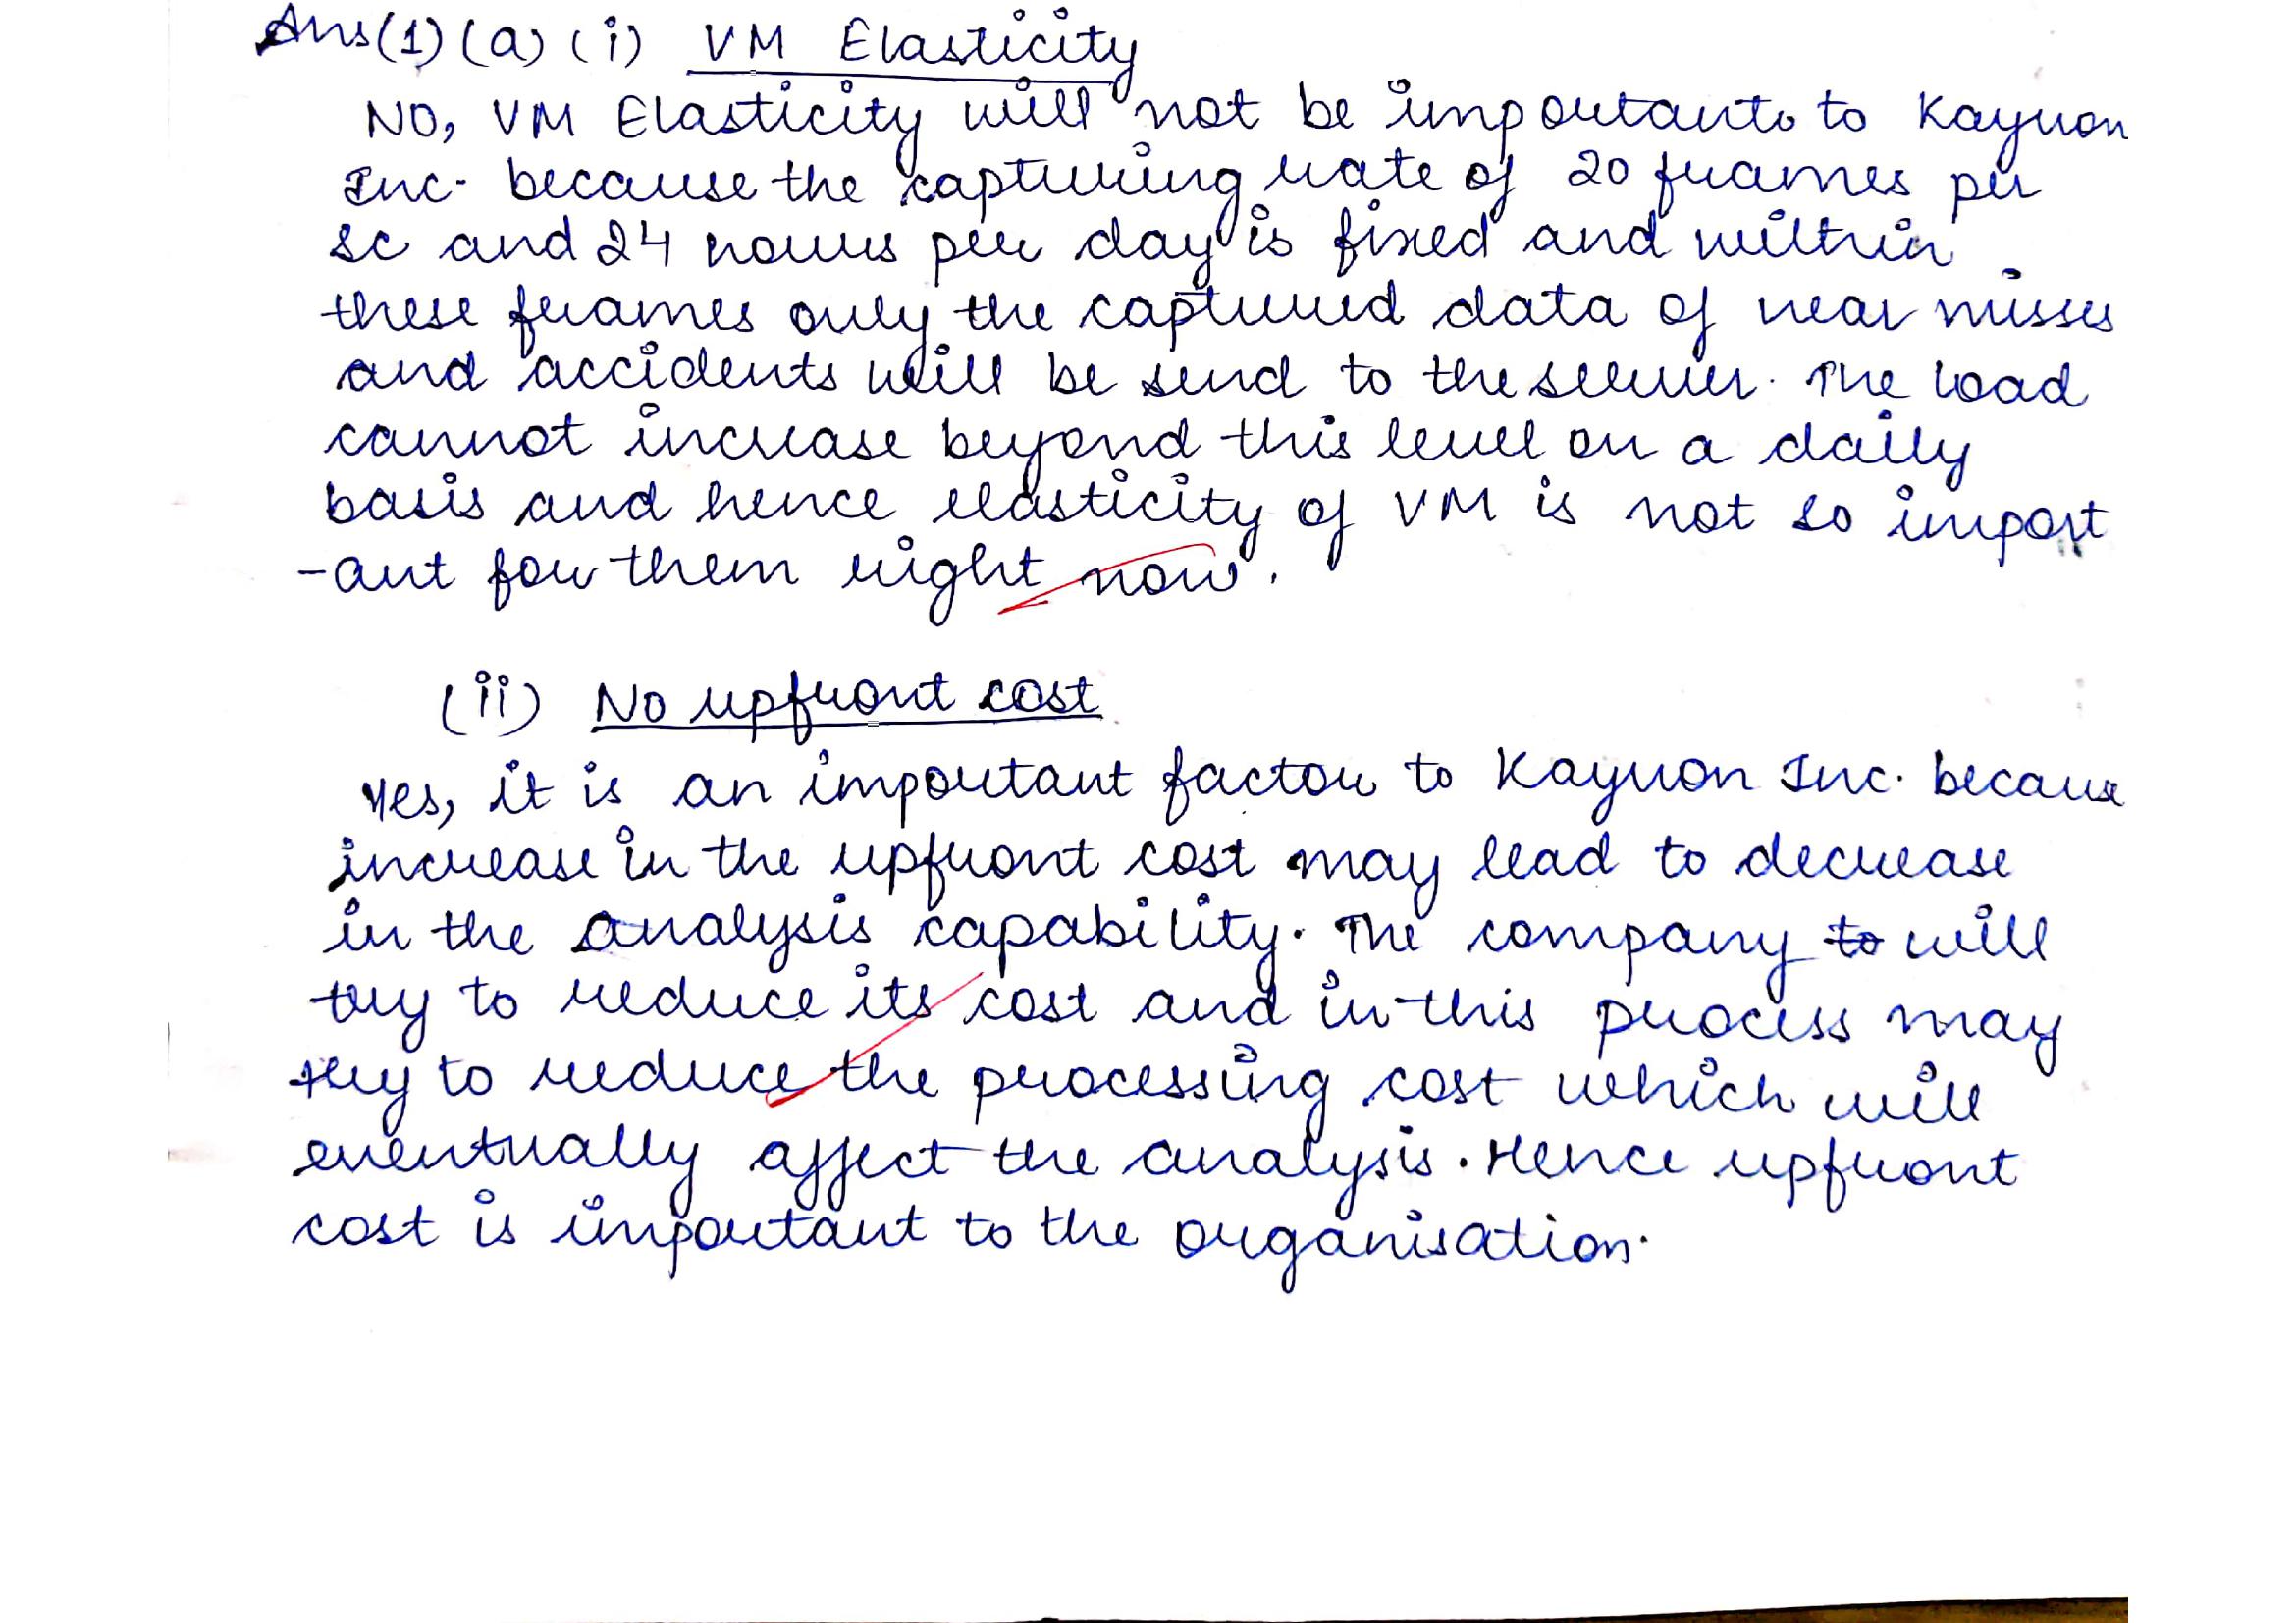 Ans(1)(a)(i) VM Elasticity
NO, VM Elasticity will not be important to Kayron
Inc. because the capturing rate of 20 frames per
sc and 24 hours per day is fixed and within
these frames only the captured data of near misses
and accidents will be send to the server. The load
cannot increase beyond this level on a daily
basis and hence elasticity of VM is not so import
-ant for them right now.
(ii) No upfront cost
Yes, it is an important factor to Kayron Inc. because
increase in the upfront cost may lead to decrease
in the analysis capability. The company to will
try to reduce its cost and in this process may
try to reduce the processing cost which will
eventually affect the analysis. Hence upfront
cost is important to the organisation.